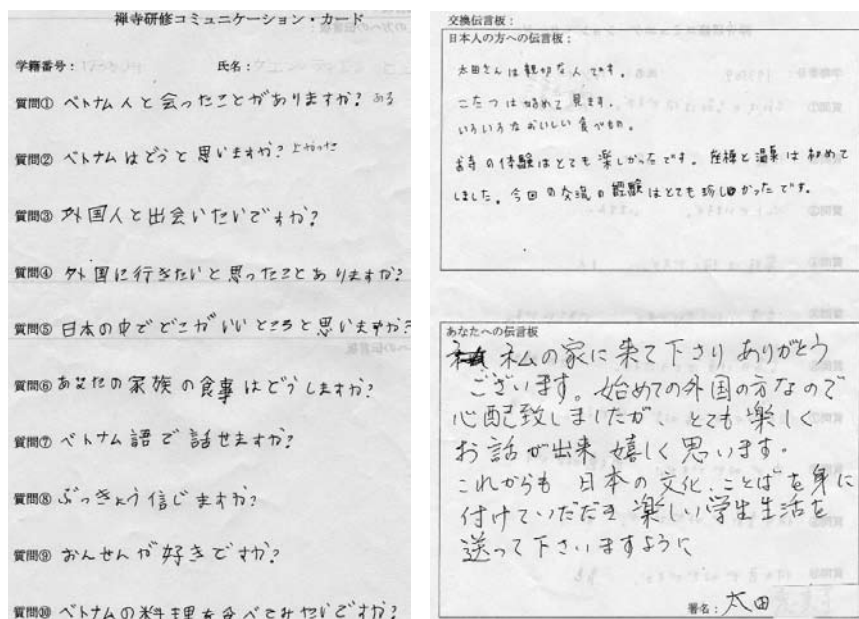 禅寺研修コミュニケーション・カード
学籍番号: 氏名:
質問① ベトナム人と会ったことがありますか? ある
質問② ベトナムはどうと思いますか? よかった
質問③ 外国人と出会いたいですか?
質問④ 外国に行きたいと思ったことありますか?
質問⑤ 日本の中でどこがいいところと思いますか?
質問⑥ あなたの家族の食事はどうしますか?
質問⑦ ベトナム語で話せますか?
質問⑧ ぶっきょう信じますか?
質問⑨ おんせんが好きですか?
質問⑩ ベトナムの料理を食べてみたいですか?
交換伝言板:
日本人の方への伝言板:
太田さんは親切な人です。
こたつは始めて見ます。
いろいろなおいしい食べもの。
お寺の体験はとても楽しかったです。座禅と温泉は初めて
しました。今回の交流の経験はとても珍しかったです。
あなたへの伝言板
私の家に来て下さりありがとう
ございます。始めての外国の方なので
心配致しましたが とても楽しく
お話が出来嬉しく思います。
これからも 日本の文化、ことばを身に
付けていだだき 楽しい学生生活を
送って下さいますように
署名: 太田